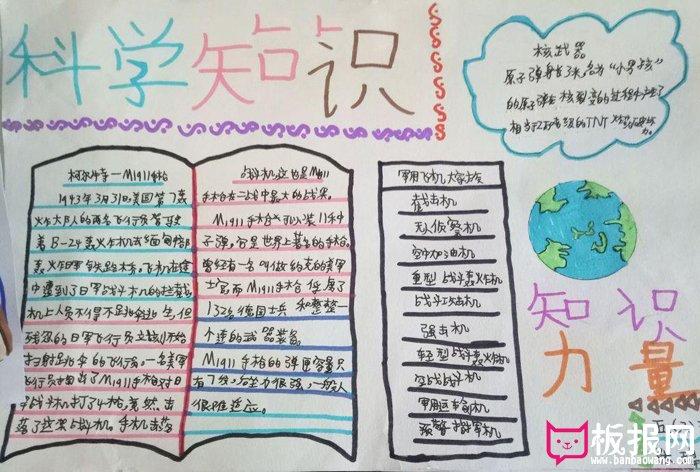 科学知识
核武器
原子弹身长3米,名为“小男孩”
的原子弹在核裂变的过程中产生了
相当于2万吨级的TNT
柯尔特—M1911手枪
1943年3月31日,美国第7轰
炸大队的两名飞行员驾驶
着B-24轰炸机去缅甸
轰炸日军铁路桥,飞机在途
中遭到了日军战斗机的拦截,
机上人员不得不跳伞逃生,但
残忍的日军飞行员立刻开始
扫射跳伞的飞行员,一名美军
飞行员才掏出了M1911手枪对日
军战斗机打了4枪,竟然击
落了这架战斗机,手枪击落
战斗机,这也是M1911
手枪在二战中最大的战果。
M1911手枪可以装11毫米
子弹,它是世界上著名的手枪。
曾经有一名叫做约克的美军
士官用M1911手枪俘虏了
132名德国士兵和整整一
个连的武器装备。
M1911手枪的弹匣容量只
有7发,后坐力很强,一般人
很难适应。
军用飞机大家族
截击机
无人侦察机
空中加油机
重型战斗轰炸机
战斗攻击机
强击机
轻型战斗轰炸机
空战战斗机
军用运输机
预警指挥机
知识
力量
板报网
www.banbaowang.com